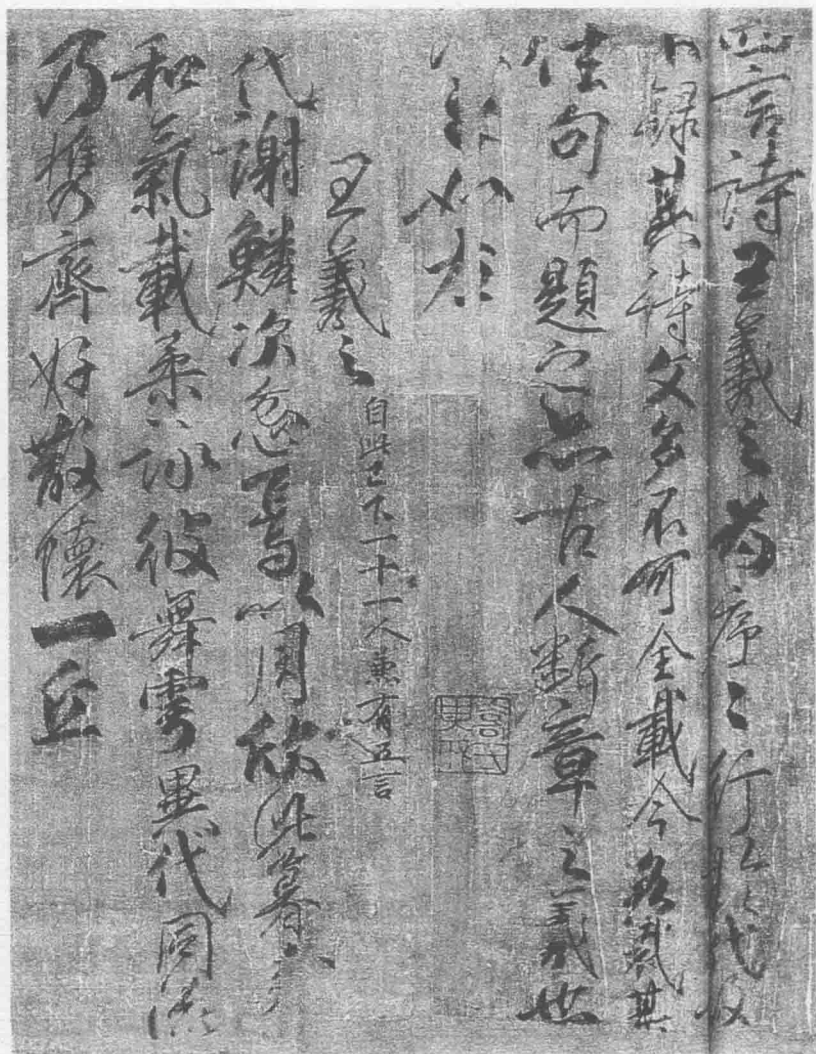 四言詩王羲之為序〻行於代故
不録其詩文多不可全載今各裁其
佳句而題之亦古人斷章之義也
如左
王羲之 自此已下一十一人兼有五言
代謝鱗次忽焉以周欣此暮春
和氣載柔詠彼舞雩異代同流
乃携齊好散懷一丘